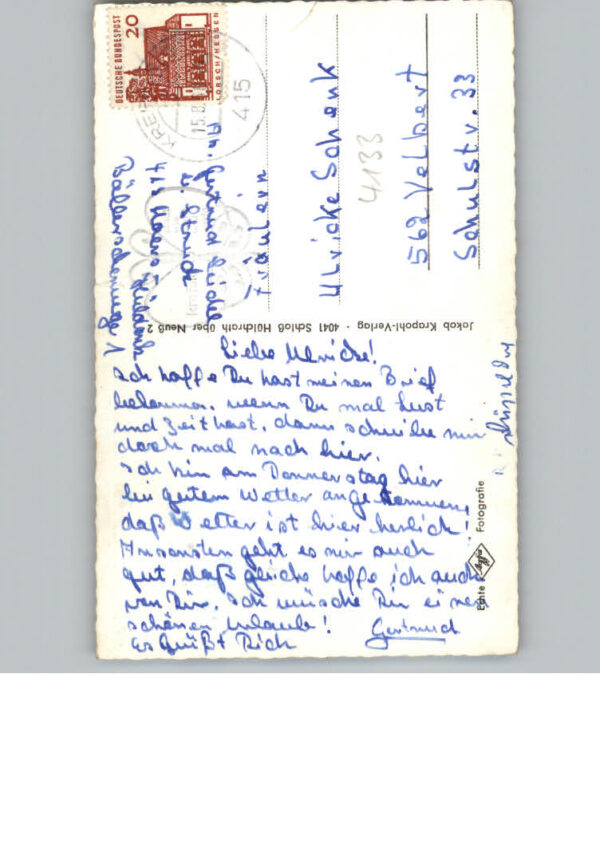 DEUTSCHE BUNDESPOST
20
LORSCH/HESSEN
KREF
15.8.
415
An.
Gertrud Seidel
b. Struck
415
1
Fräulein
Ulricke Schenk
4133
562 Velbert
Schulstr. 33
Jakob Krapohl-Verlag · 4041 Schloß Hülchrath über Neuß 2
Liebe Ulricke!
Ich hoffe Du hast meinen Brief
bekommen. wenn Du mal Lust
und Zeit hast, dann schreibe mir
doch mal nach hier.
Ich bin am Donnerstag hier
bei gutem Wetter angekommen,
daß Wetter ist hier herlich!
Ansonsten geht es mir auch
gut, daß gleiche hoffe ich auch
von Dir. Ich wünsche Dir einen
schönen Urlaub!
Es Grüßt Dich
Gertrud
Echte
Agfa
Fotografie